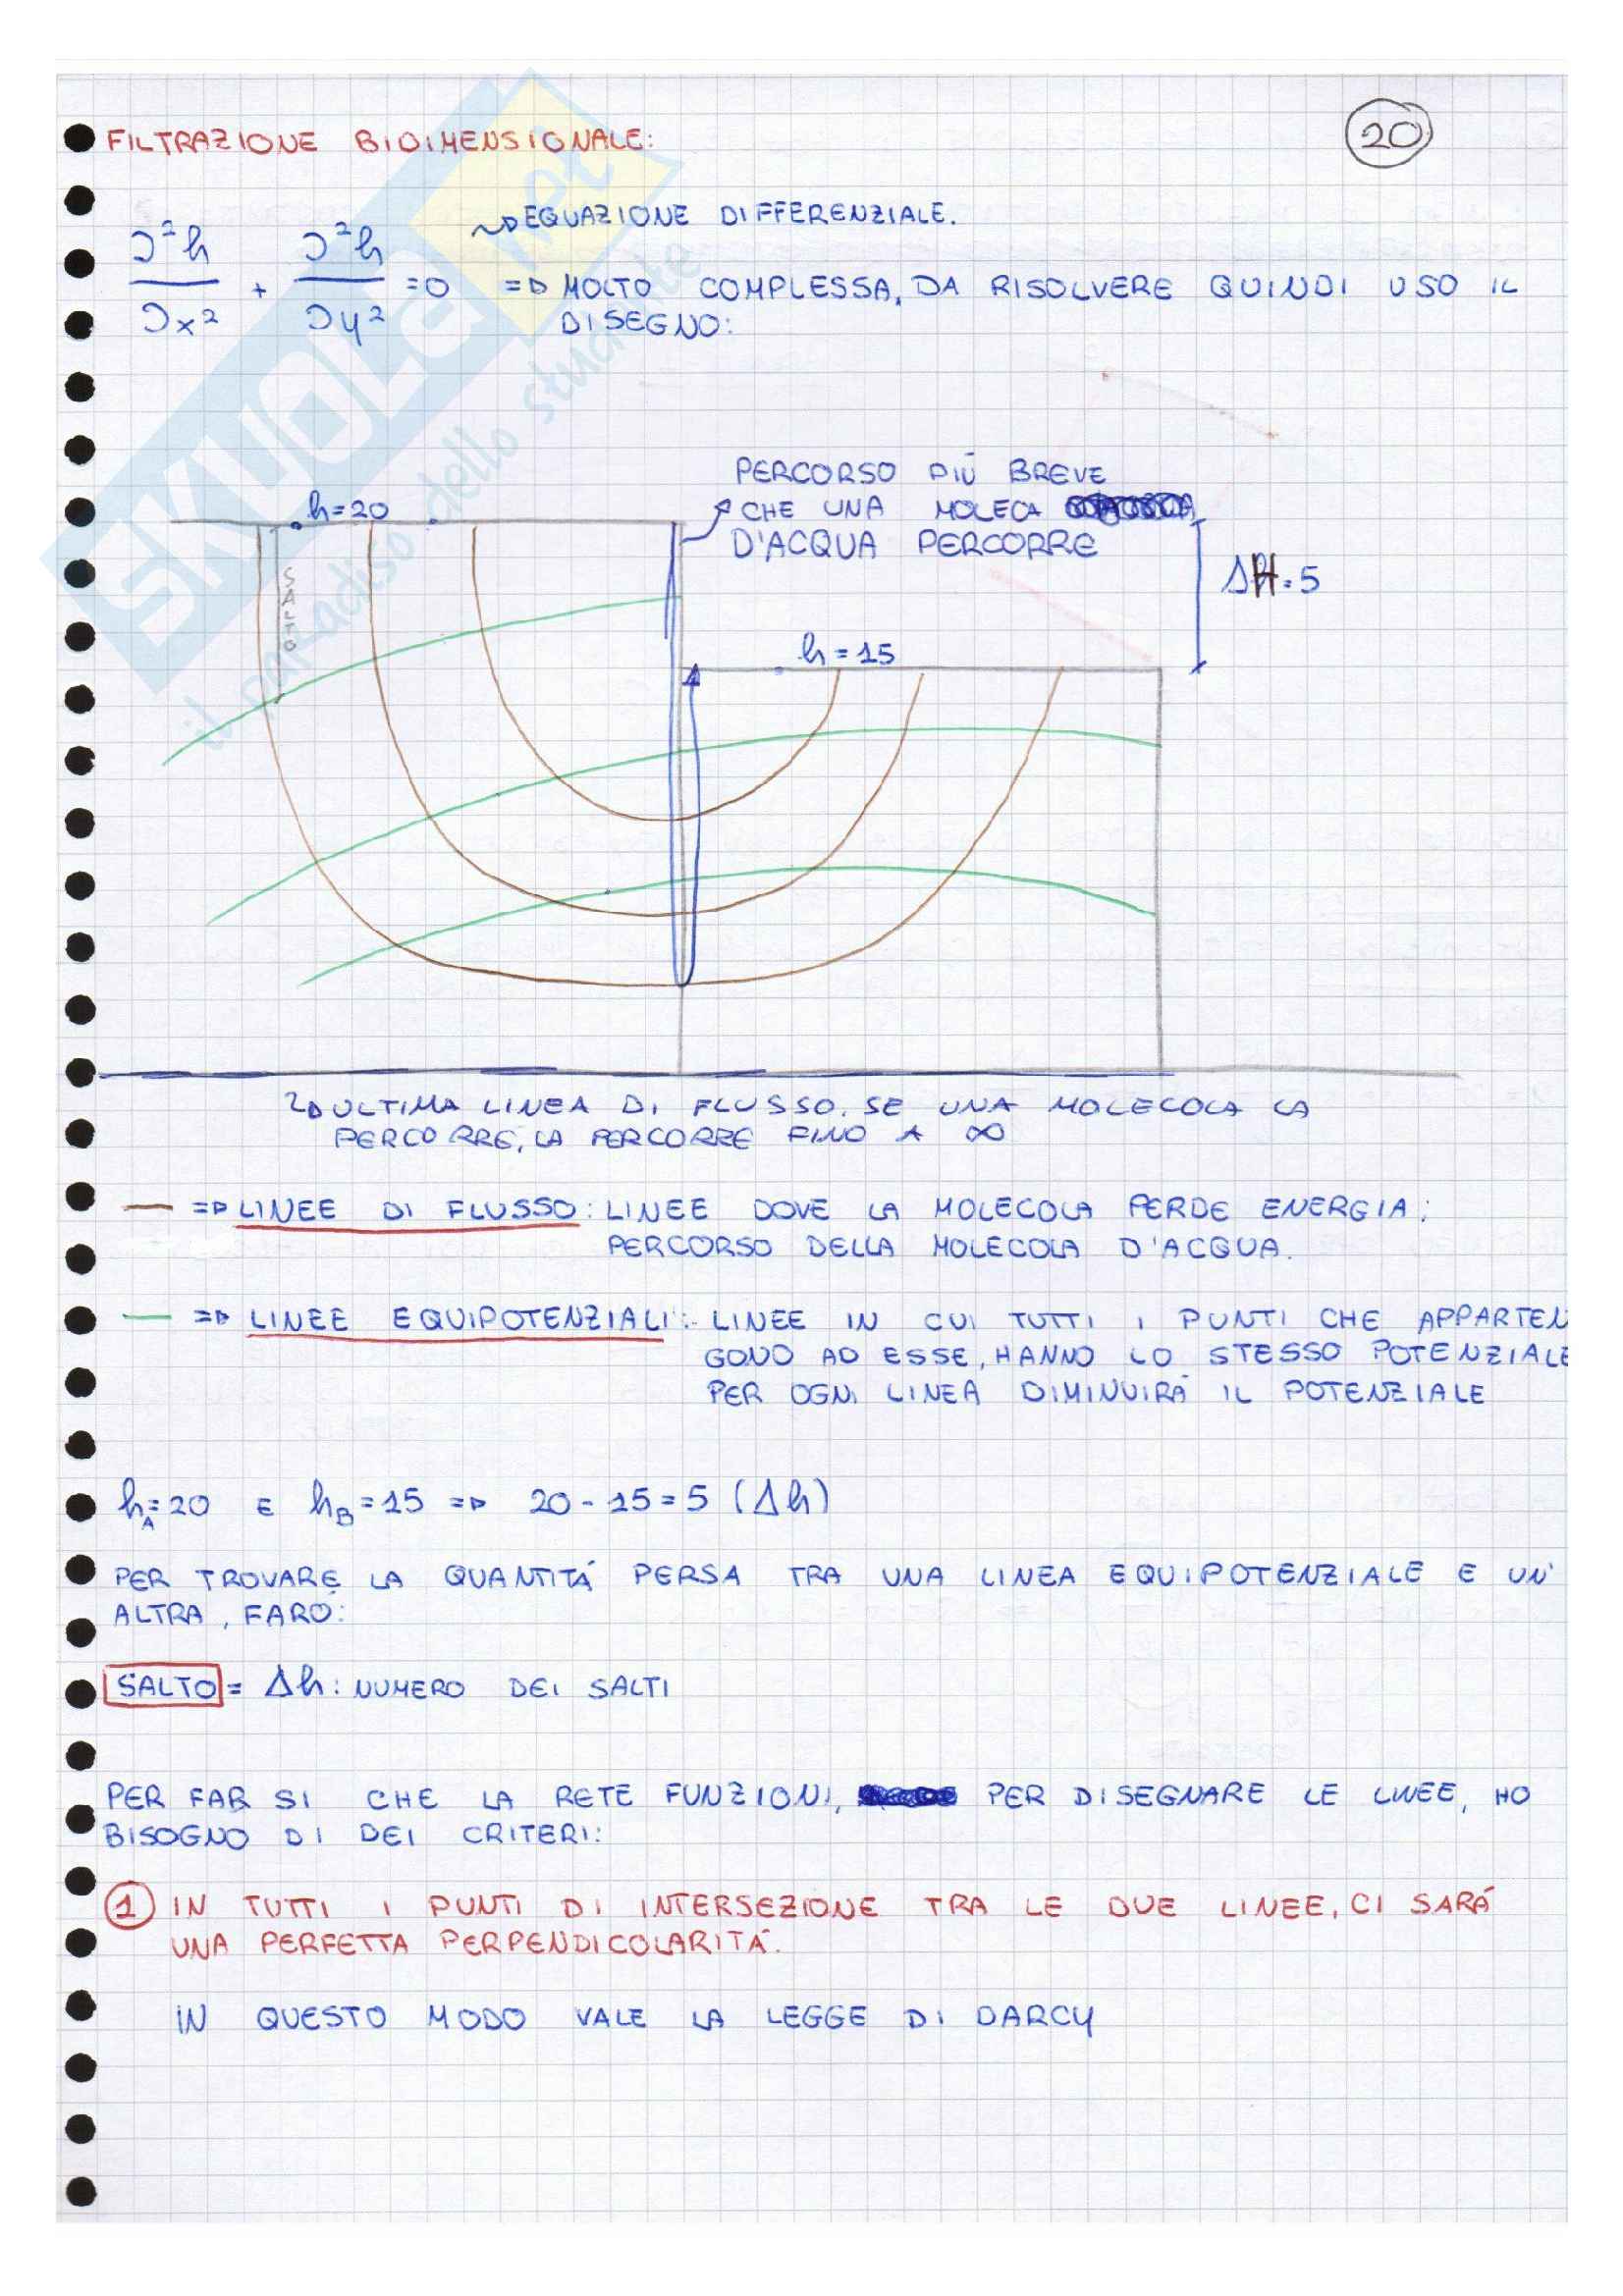 20
FILTRAZIONE BIDIMENSIONALE:
EQUAZIONE DIFFERENZIALE.
∂²h/∂x² + ∂²h/∂y² =0 => MOLTO COMPLESSA, DA RISOLVERE QUINDI USO IL
DISEGNO:
PERCORSO PIÙ BREVE
h=20
CHE UNA MOLECA
D'ACQUA PERCORRE
ΔH=5
SALTO
h=15
ULTIMA LINEA DI FLUSSO. SE UNA MOLECOLA LA
PERCORRE, LA PERCORRE FINO A ∞
=> LINEE DI FLUSSO: LINEE DOVE LA MOLECOLA PERDE ENERGIA;
PERCORSO DELLA MOLECOLA D'ACQUA.
=> LINEE EQUIPOTENZIALI: LINEE IN CUI TUTTI I PUNTI CHE APPARTEN
GONO AD ESSE, HANNO LO STESSO POTENZIALE
PER OGNI LINEA DIMINUIRÁ IL POTENZIALE
hA=20 E hB=15 => 20-15=5 (Δh)
PER TROVARE LA QUANTITÁ PERSA TRA UNA LINEA EQUIPOTENZIALE E UN'
ALTRA, FARÒ:
SALTO = Δh : NUMERO DEI SALTI
PER FAR SI CHE LA RETE FUNZIONI, PER DISEGNARE LE LINEE, HO
BISOGNO DI DEI CRITERI:
1 IN TUTTI I PUNTI DI INTERSEZIONE TRA LE DUE LINEE, CI SARÁ
UNA PERFETTA PERPENDICOLARITÁ.
IN QUESTO MODO VALE LA LEGGE DI DARCY
SKUOLA.net
il paradiso dello studente